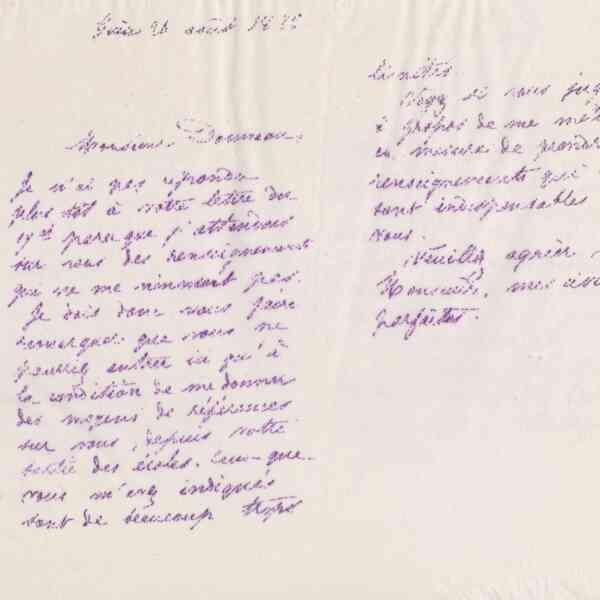 26 août 18
Monsieur
Je n'ai pas répondu
plus tôt à votre lettre du
parce que j'attendais
sur vous des renseignements
qui ne me viennent pas.
Je dois donc vous faire
remarquer que vous ne
pourrez entrer ici qu'à
la condition de me donner
des moyens de références
sur vous, depuis votre
sortie des écoles. Ceux que
vous m'avez indiqués
sont de beaucoup trop
limités.
si vous
à propos de me
en mesure de prendre
renseignements qui
sont indispensables
vous.
Veuillez agréer
Monsieur, mes
parfaites.